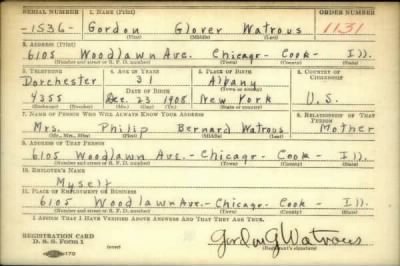 SERIAL NUMBER 1. NAME (Print) ORDER NUMBER
-1536- Gordon Glover Watrous 1131
(First) (Middle) (Last)
2. ADDRESS (Print)
6105 Woodlawn Ave. Chicago - Cook - Ill.
(Number and street or R. F. D. number) (Town) (County) (State)
3. TELEPHONE 4. AGE IN YEARS 5. PLACE OF BIRTH 6. COUNTRY OF CITIZENSHIP
Dorchester 31 Albany
(Town or county)
DATE OF BIRTH
4355 Dec. 23 1908 New York U.S.
(Exchange) (Number) (Mo.) (Day) (Yr.) (State or country)
7. NAME OF PERSON WHO WILL ALWAYS KNOW YOUR ADDRESS 8. RELATIONSHIP OF THAT PERSON
Mrs. Philip Bernard Watrous Mother
(Mr., Mrs., Miss) (First) (Middle) (Last)
9. ADDRESS OF THAT PERSON
6105 Woodlawn Ave. - Chicago - Cook - Ill
(Number and street or R. F. D. number) (Town) (County) (State)
10. EMPLOYER'S NAME
Myself
11. PLACE OF EMPLOYMENT OR BUSINESS
6105 Woodlawn Ave. - Chicago - Cook - Ill.
(Number and street or R. F. D. number) (Town) (County) (State)
I AFFIRM THAT I HAVE VERIFIED ABOVE ANSWERS AND THAT THEY ARE TRUE.
REGISTRATION CARD
D. S. S. FORM 1
Gordon G Watrous
(Registrant's signature)